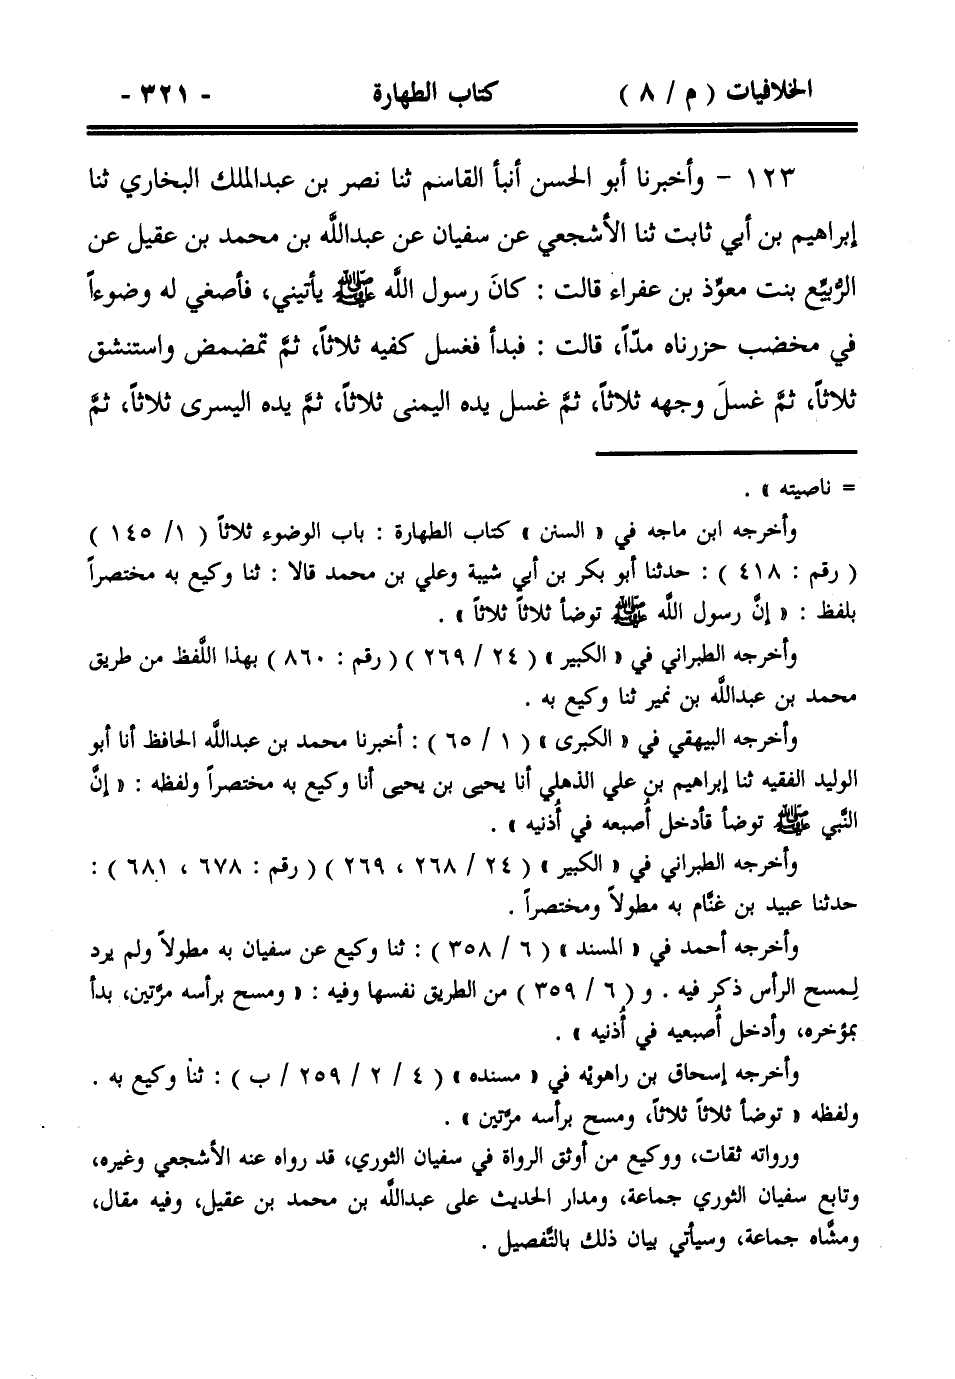 الخلافيات ( م / ٨ ) كتاب الطهارة - ٣٢١ -
١٢٣ - وأخبرنا أبو الحسن أنبأ القاسم ثنا نصر بن عبدالملك البخاري ثنا
إبراهيم بن أبي ثابت ثنا الأشجعي عن سفيان عن عبداللَّه بن محمد بن عقيل عن
الرُّبيِّع بنت معوِّذ بن عفراء قالت : كانَ رسول اللَّه ﷺ يأتيني، فأصغي له وضوءاً
في مخضب حزرناه مدّاً، قالت : فبدأ فغسل كفيه ثلاثاً، ثمَّ تمضمض واستنشق
ثلاثاً، ثمَّ غسلَ وجهه ثلاثاً، ثمَّ غسل يده اليمنى ثلاثاً، ثمَّ يده اليسرى ثلاثاً، ثمَّ
= ناصيته » .
وأخرجه ابن ماجه في « السنن » كتاب الطهارة : باب الوضوء ثلاثاً ( ١/ ١٤٥ )
( رقم : ٤١٨ ) : حدثنا أبو بكر بن أبي شيبة وعلي بن محمد قالا : ثنا وكيع به مختصراً
بلفظ : « إنَّ رسول اللَّه ﷺ توضأ ثلاثاً ثلاثاً » .
وأخرجه الطبراني في « الكبير » ( ٢٤ / ٢٦٩ ) ( رقم : ٨٦٠ ) بهذا اللَّفظ من طريق
محمد بن عبداللَّه بن نمير ثنا وكيع به .
وأخرجه البيهقي في « الكبرى » ( ١ / ٦٥ ) : أخبرنا محمد بن عبداللَّه الحافظ أنا أبو
الوليد الفقيه ثنا إبراهيم بن علي الذهلي أنا يحيى بن يحيى أنا وكيع به مختصراً ولفظه : « إنَّ
النَّبي ﷺ توضأ فأدخل أُصبعه في أُذنيه » .
وأخرجه الطبراني في « الكبير » ( ٢٤ / ٢٦٨ ، ٢٦٩ ) ( رقم : ٦٧٨ ، ٦٨١ ) :
حدثنا عبيد بن غنَّام به مطولاً ومختصراً .
وأخرجه أحمد في « المسند » ( ٦ / ٣٥٨ ) : ثنا وكيع عن سفيان به مطولاً ولم يرد
لِمسح الرأس ذكر فيه . و ( ٦ / ٣٥٩ ) من الطريق نفسها وفيه : « ومسح برأسه مرَّتين، بدأ
بمؤخره، وأدخل أُصبعيه في أُذنيه » .
وأخرجه إسحاق بن راهويْه في « مسنده » ( ٤ / ٢ / ٢٥٩ / ب ) : ثنا وكيع به .
ولفظه « توضأ ثلاثاً ثلاثاً، ومسح برأسه مرَّتين » .
ورواته ثقات، ووكيع من أوثق الرواة في سفيان الثوري، قد رواه عنه الأشجعي وغيره،
وتابع سفيان الثوري جماعة، ومدار الحديث على عبداللَّه بن محمد بن عقيل، وفيه مقال،
ومشَّاه جماعة، وسيأتي بيان ذلك بالتَّفصيل .